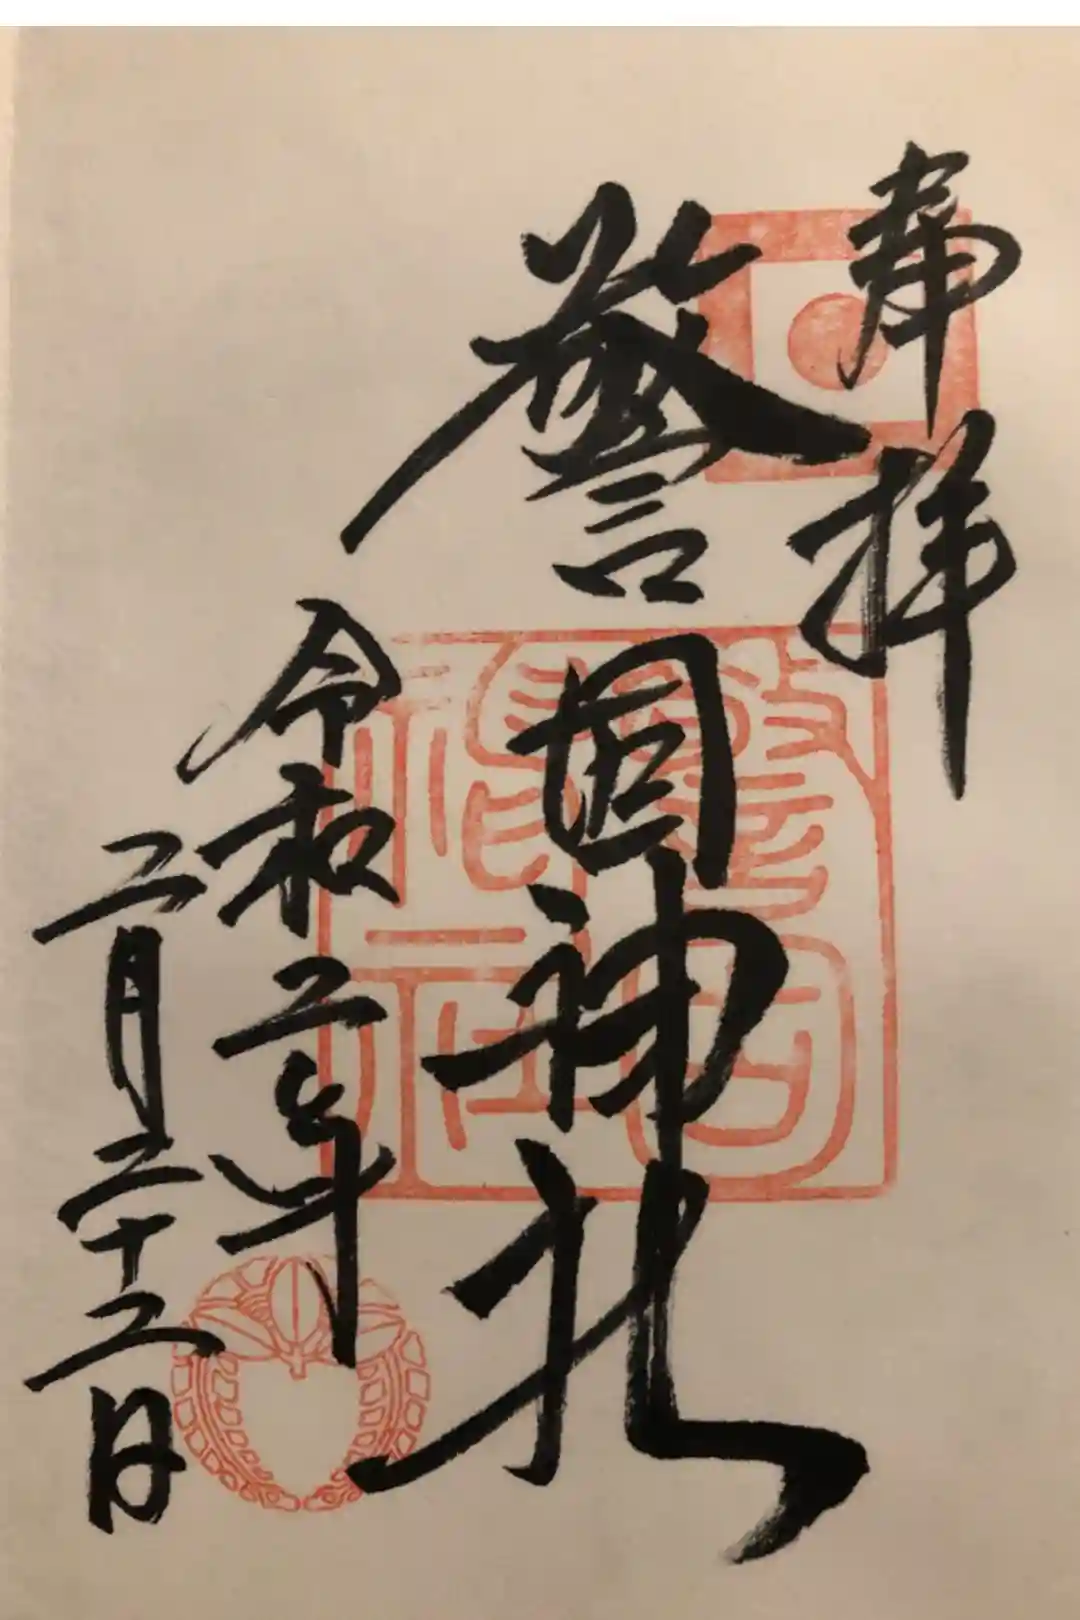 奉拝
警固神社
警固
神社
令和二年
二月二十二日